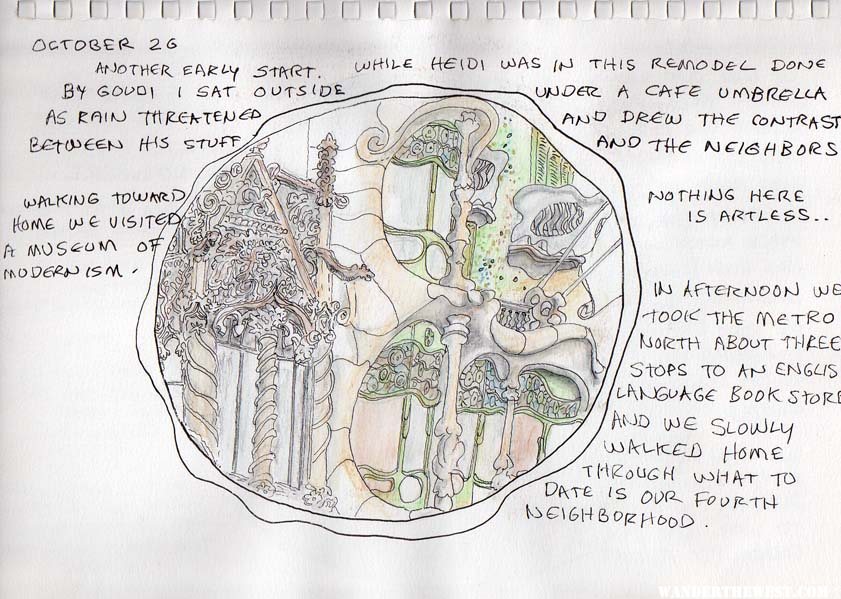 OCTOBER 26
ANOTHER EARLY START. WHILE HEIDI WAS IN THIS REMODEL DONE
BY GOUDI I SAT OUTSIDE UNDER A CAFE UMBRELLA
AS RAIN THREATENED AND DREW THE CONTRAST
BETWEEN HIS STUFF AND THE NEIGHBORS
WALKING TOWARD
HOME WE VISITED
A MUSEUM OF
MODERNISM.
NOTHING HERE
IS ARTLESS..
IN AFTERNOON WE
TOOK THE METRO
NORTH ABOUT THREE
STOPS TO AN ENGLIS
LANGUAGE BOOK STORE
AND WE SLOWLY
WALKED HOME
THROUGH WHAT TO
DATE IS OUR FOURTH
NEIGHBORHOOD.
WANDERTHEWEST.COM